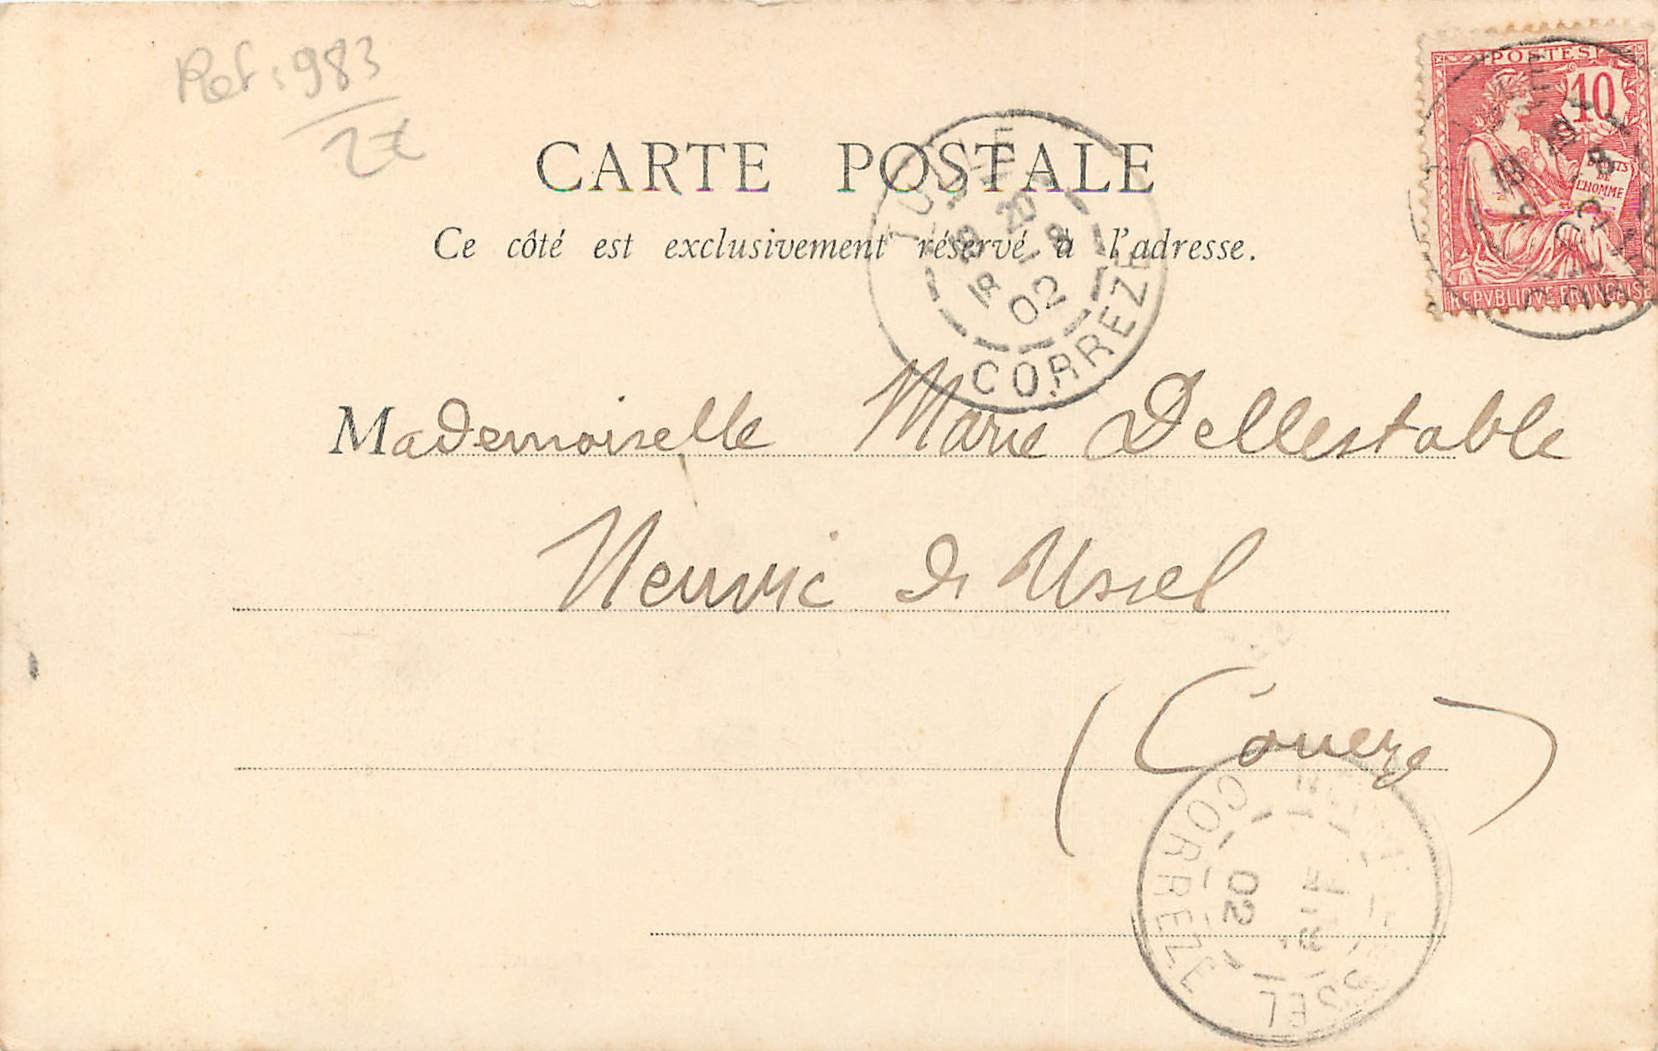 Ref: 983
2€
POSTES
10
DROITS
L'HOMME
REPVBLIQVE FRANÇAISE
02
CARTE POSTALE
Ce côté est exclusivement réservé à l'adresse.
TULLE
02
CORREZE
Mademoiselle Marie Dellestable
Neuvic d' Ussel
(Corrèze)
CORREZE
02